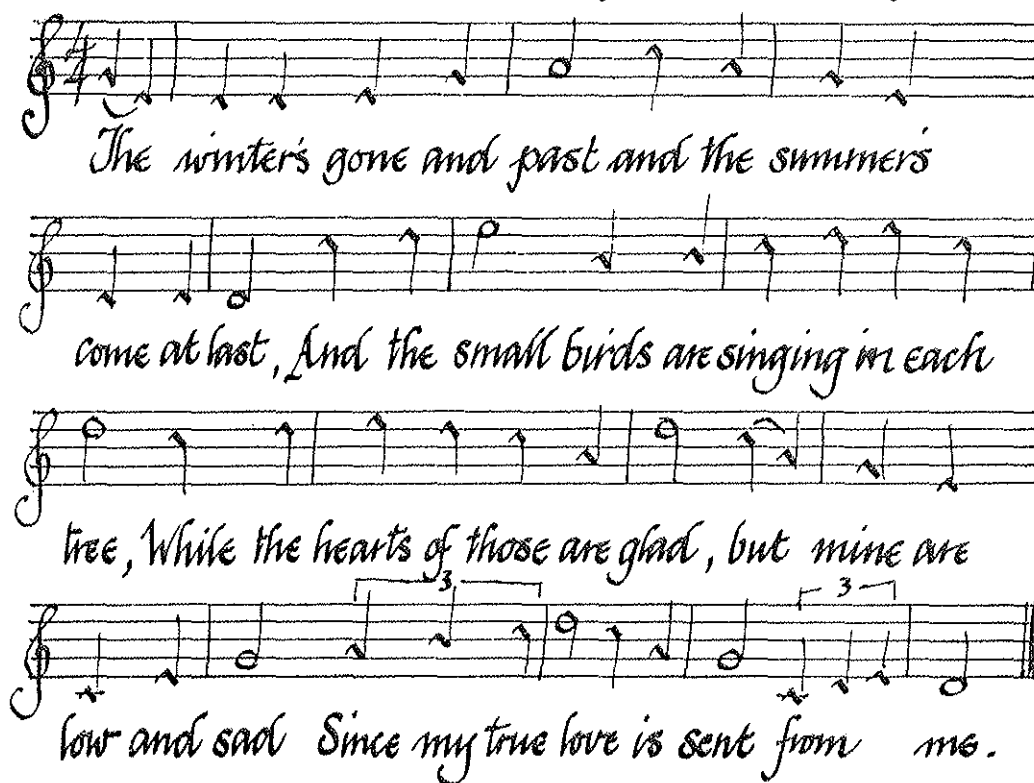 The winter's gone and past and the summers
come at last, And the small birds are singing in each
tree, While the hearts of those are glad, but mine are
3 3
low and sad Since my true love is sent from me.